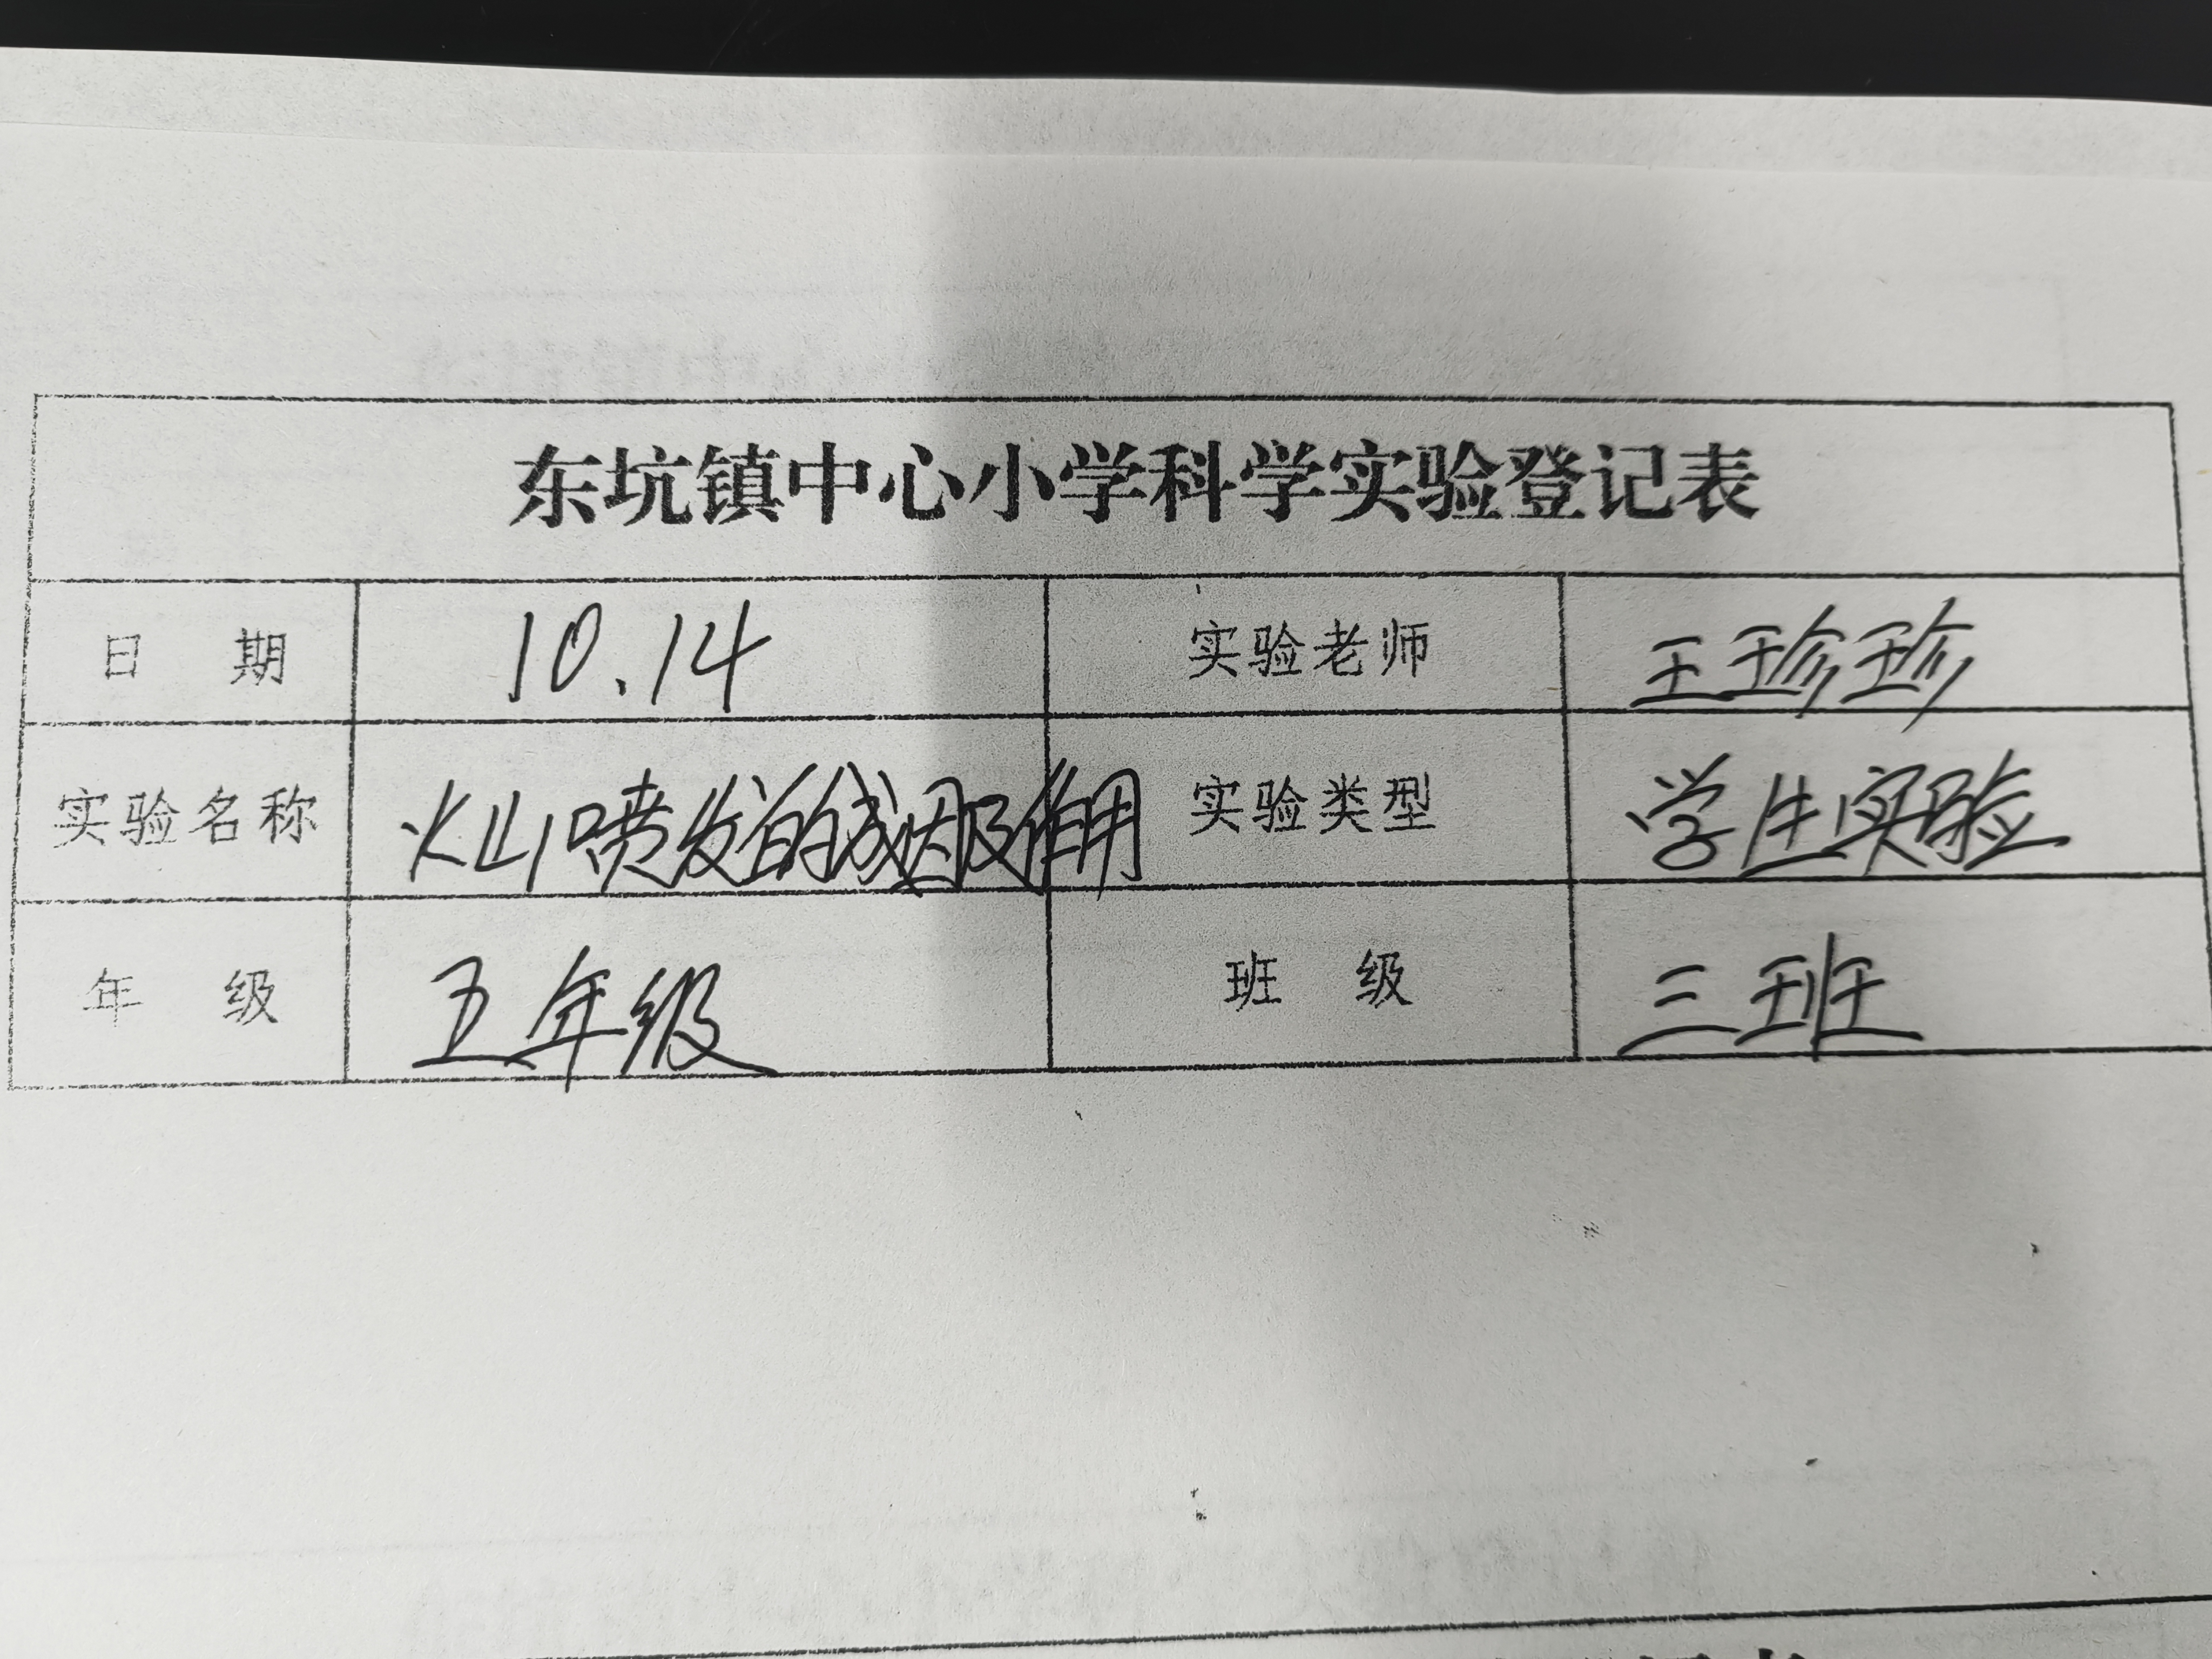 东坑镇中心小学科学实验登记表
日 期 10.14 实验老师 王珍珍
实验名称 火山喷发的成因及作用 实验类型 学生实验
年 级 五年级 班 级 三班